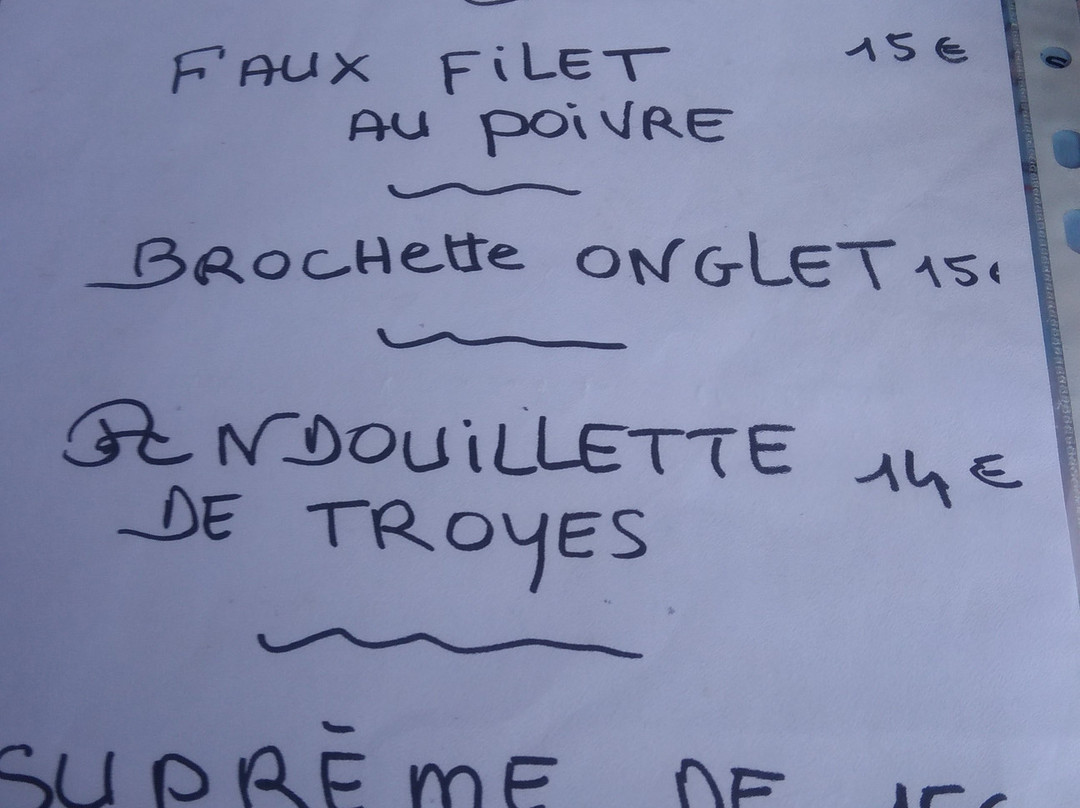 FAUX FiLET 15€
AU POiVRE
BROCHette ONGLET 15€
ANDOUiLLETTE 14€
DE TROYES
SUPRÊME DE 15€